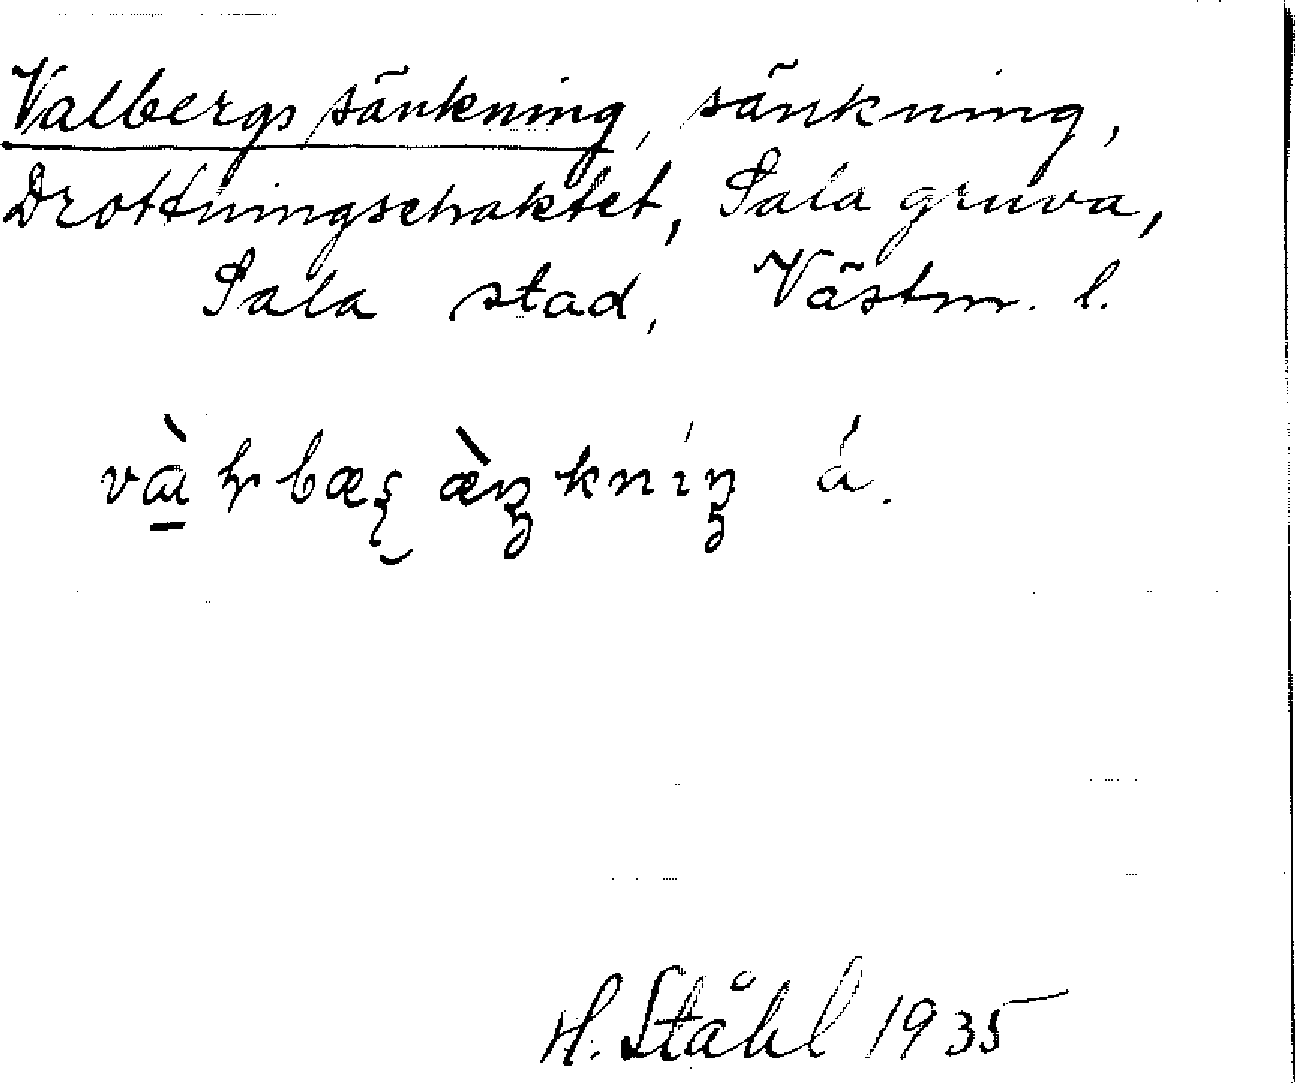 Valbergs sänkning, sänkning,
Drottningschaktet, Sala gruva,
Sala stad, Västm. l.
á.
H. Ståhl 1935